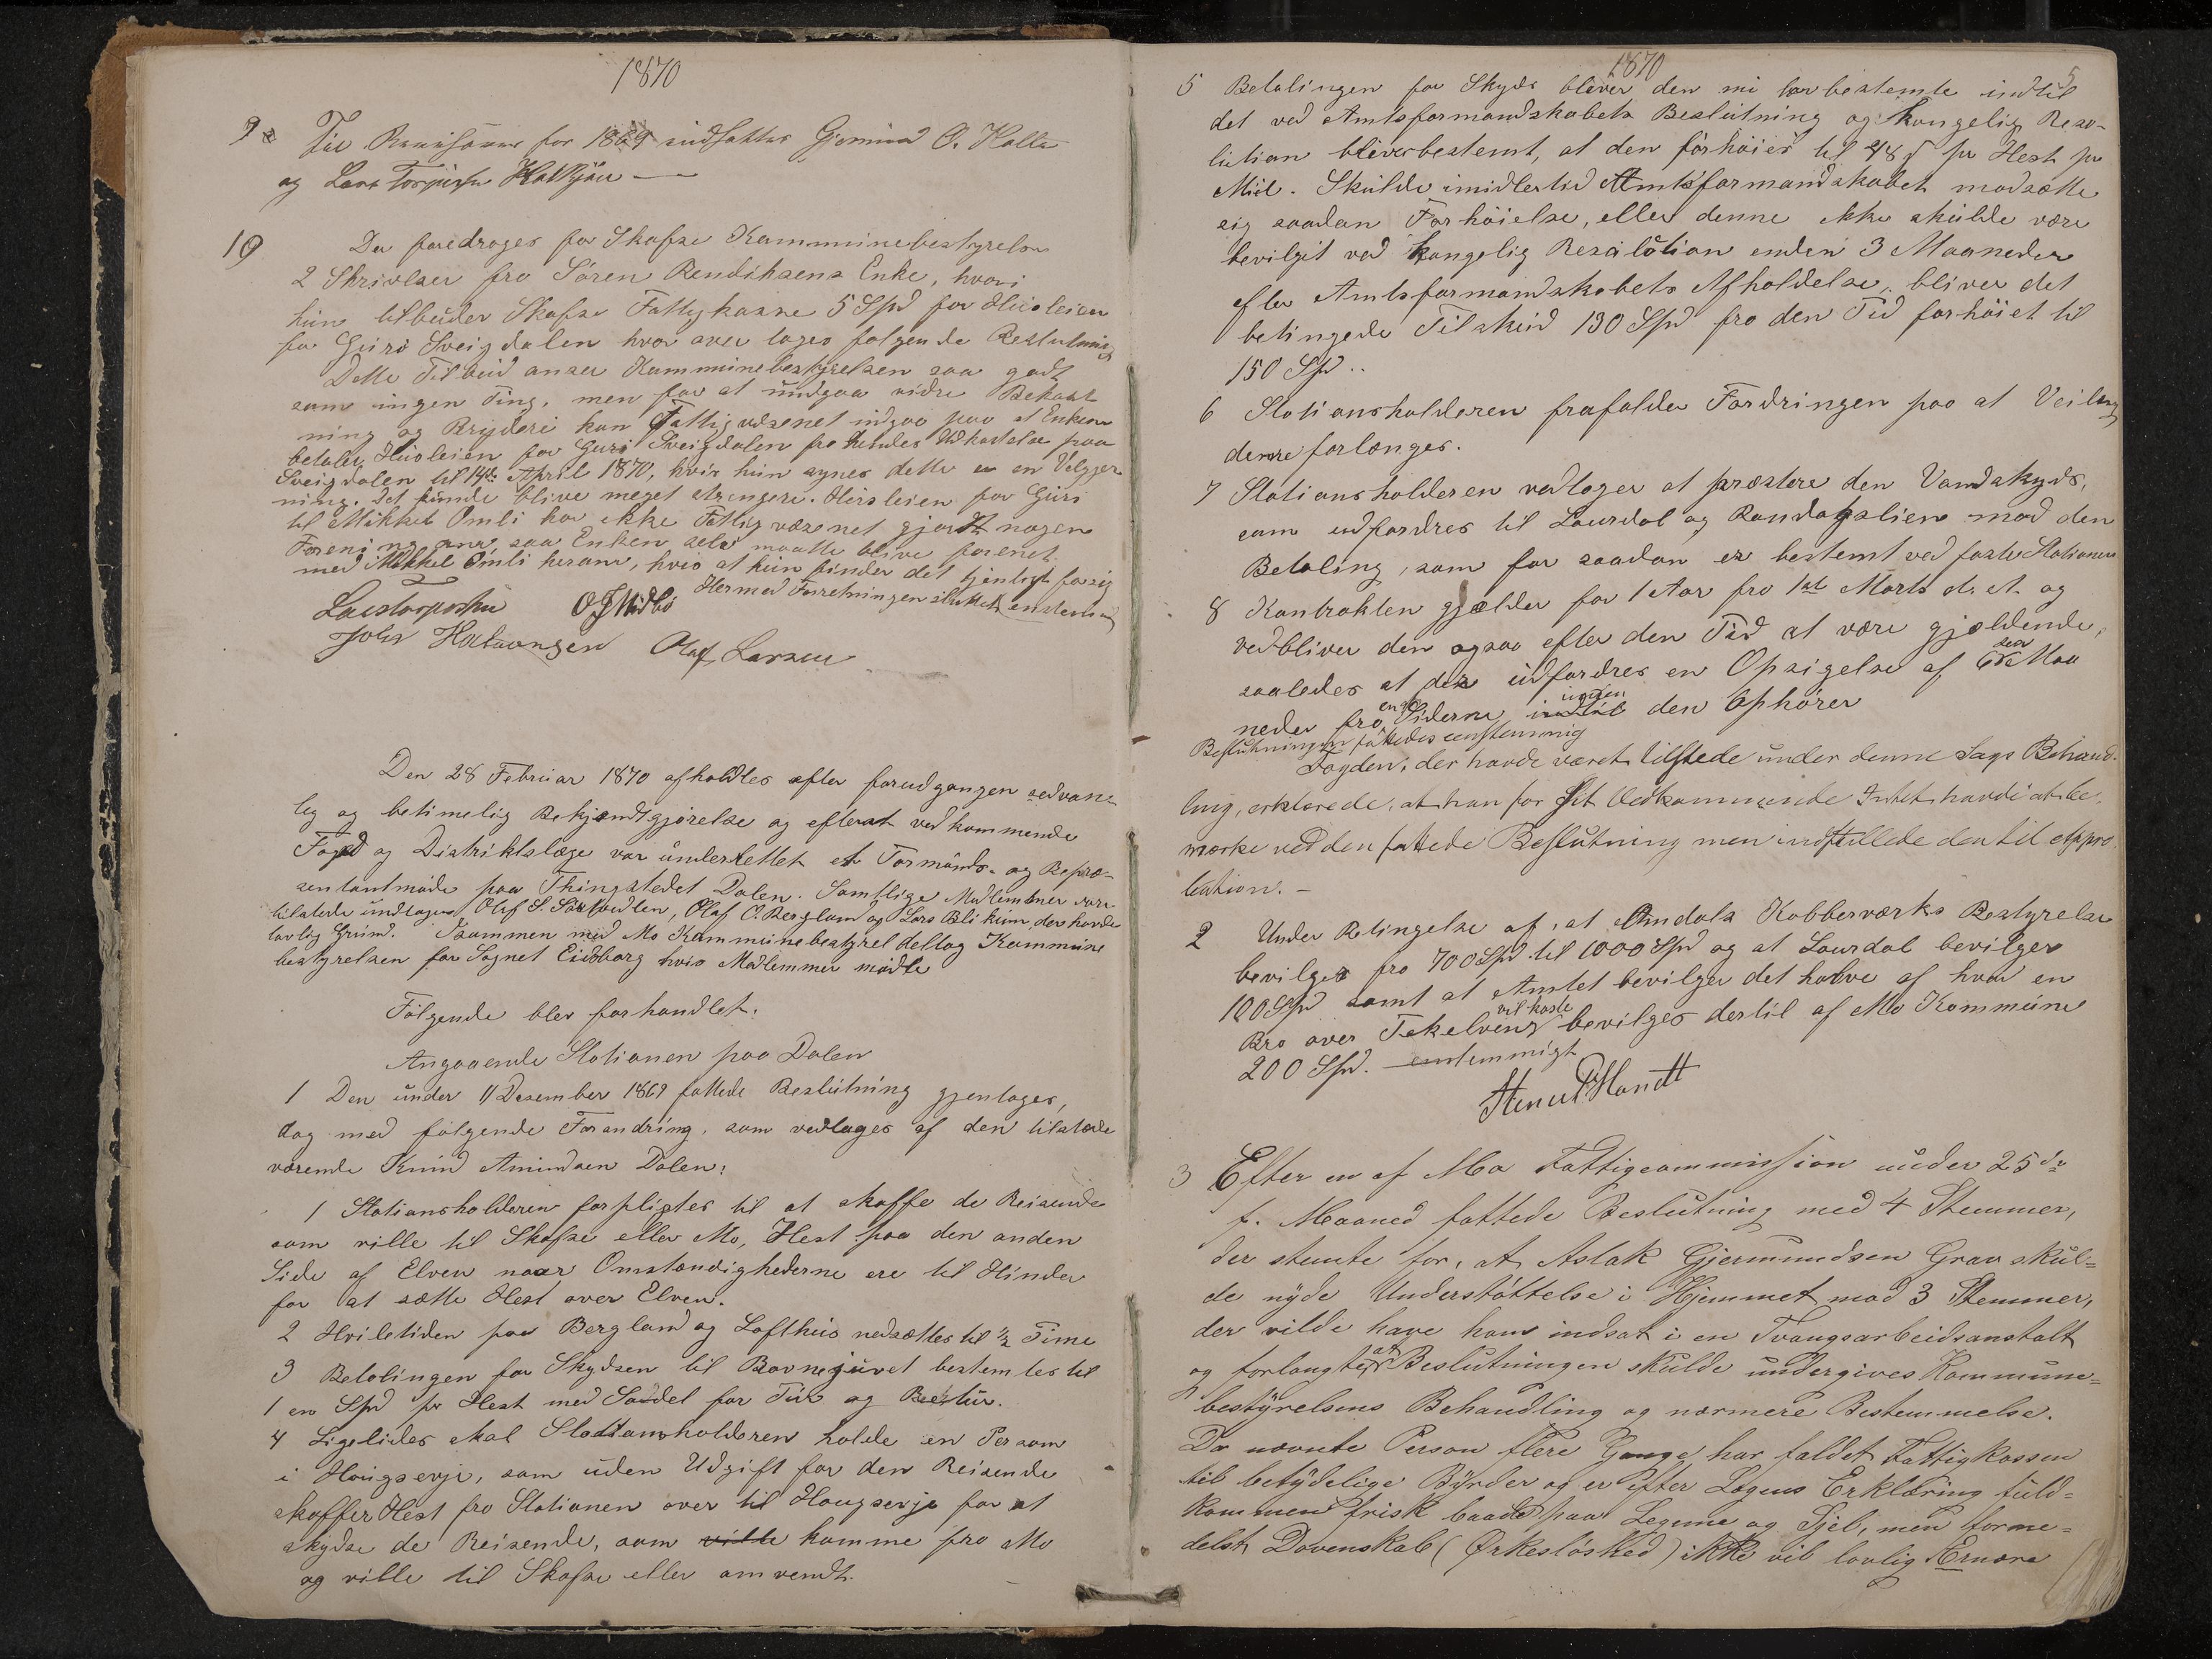 1870
9 Til Revisorer for 1869 indsattes Gjermund O. Holte
og Lars Torjusen
10 Der foredroges for Skafse Kommunebestyrelse
2 Skrivelser fra Sören Bendiksens Enke, hvori
hun tilbüder Skafse Fattigkasse 5 Spd for Húsleien
for Guro Sveigdalen hvor over toges følgende Beslutning
Dette Tilbúd anser Kommunebestyrelsen saa godt
som ingen Ting, men for at undgaa vidre Bekost
ning og Bryderi kan Fattigvæsenet indgaa paa at Enken
betaler Húsleien for Guro Sveigdalen fra hendes Udkastelse paa
Sveigdalen til 14de April 1870, hvis hun synes dette er en Velgjer
ning. Det kunde blive meget strengere. Húsleien for Guro
til Mikkel Omli har ikke Fattigvæsenet gjordt nogen
Forening om, saa Enken selv maatte blive forenet
med Mikkel Omli herom, hvis at hun finder det tjenligt for sig
Hermed Forretningen sluttet
O J Midbö
John Halvorsen Olaf Larsen
Den 28 Februar 1870 afholdtes efter forudgangen sedvan
lig og betimelig Bekjendtgjørelse og efterat vedkommende
Foged og Distriktslæge var underrettet et Formands- og Repræ-
sentantmøde paa Thingstedet Dalen. Samtlige Medlemmer vare
tilstede undtagen Olaf S. , Olaf O. Bergland og Lars Blikum, der havde
lovlig Grund. Isammen med Mo Kommunebestyrel deltog Kommune
bestyrelsen for Sognet Eidsborg hvis Medlemmer mödte
Fölgende blev forhandlet.
Angaaende Stationen paa Dalen
1 Den under 11 Desember 1869 fattede Beslutning gjentages,
dog med følgende Forandring, som vedtages af den tilstede
værende Knud Amundsen Dalen:
1 Stationsholderen forpligtes til at skaffe de Reisende
som ville til Skafse eller Mo, Hest paa den anden
Side af Elven naar Omstændighederne ere til Hinder
for at sætte Hest over Elven.
2 Hviletiden paa Bergland og Lofthus nedsættes til ½ Time
3 Betalingen for Skydsen til Ravnejuvet bestemtes til
1 en Spd pr Hest med Sadel for Túr og Retur.
4 Ligelides skal Stationsholderen holde en Person
i Haugserje, som uden Udgift for den Reisende
skaffer Hest fra Stationen over til Haugserje for at
skydse de Reisende, som ville komme fra Mo
og ville til Skafse eller omvendt.
1870
5
5 Betalingen for Skyds bliver den nu bestemte indtil
det ved Amtsformandskabets Beslutning og Kongelig Reso-
lution bliver bestemt, at den forhöies til 48 ß pr Hest pr
Miil. Skulde imidlertid Amtsformandskabet modsætte
sig saadan Forhöielse, eller denne ikke skulde være
bevilgit ved Kongelig Resolution enden 3 Maaneder
efter Amtsformandskabets Afholdelse, bliver det
betingede Tilskud 130 Spd fra den Tid forhöiet til
150 Spd..
6 Stationsholderen frafalder Fordringen paa at Veilæng
derne forlænges.
7 Stationsholderen vedtager at præstere den Vandskyds,
som udfordres til Laurdal og Bandakslien mod den
Betaling, som for saadan er bestemt ved faste Stationer
8 Kontrakten gjælder for 1 Aar fra 1ste Marts d. A. og
vedbliver den ogsaa efter den Tid at være gjældende,
saaledes at der udfordres en Opsigelse af 6 sex Maa
neder fra en af Siderne, indtil inden den Ophörer
Beslutningen fattedes eenstemmig
Fogden, der havde været tilstede under denne Sags Behand-
ling, erklærede, at han for sit Vedkommende Intet havde at be-
mærke ved den fattede Beslutning men indstillede den til Appro-
bation. -
2 Under Betingelse af, at Omdals Kobberværks Bestyrelse
bevilges fra 700 Spd til 1000 Spd og at Laurdal bevilger
100 Spd samt at Amtet bevilger det halve af hvad en
Bro over Tokelven vil koste bevilges dertil af Mo Kommune
200 Spd. - enstemmigt
3 Efter en af Mo Fattigcommission under 25de
f. Maaned fattede Beslutning med 4 Stemmer,
der stemte for, at Aslak Gjermundsen Grav skul=
de nyde Understöttelse i Hjemmet mod 3 Stemmer,
der vilde have ham indsat i en Tvangsarbeidsanstalt
og forlangte at Beslutningen skulde undergives Kommune=
bestyrelsens Behandling og nærmere Bestemmelse.
Da nævnte Person flere Gange har faldet Fattigkassen
til betydelige Byrder og er efter Lægens Erklæring fuld=
kommen frisk baade paa Legeme og Sjel, men forme=
delst Dovenskab (Ørkeslöshed) ikke vil lovlig Ernære